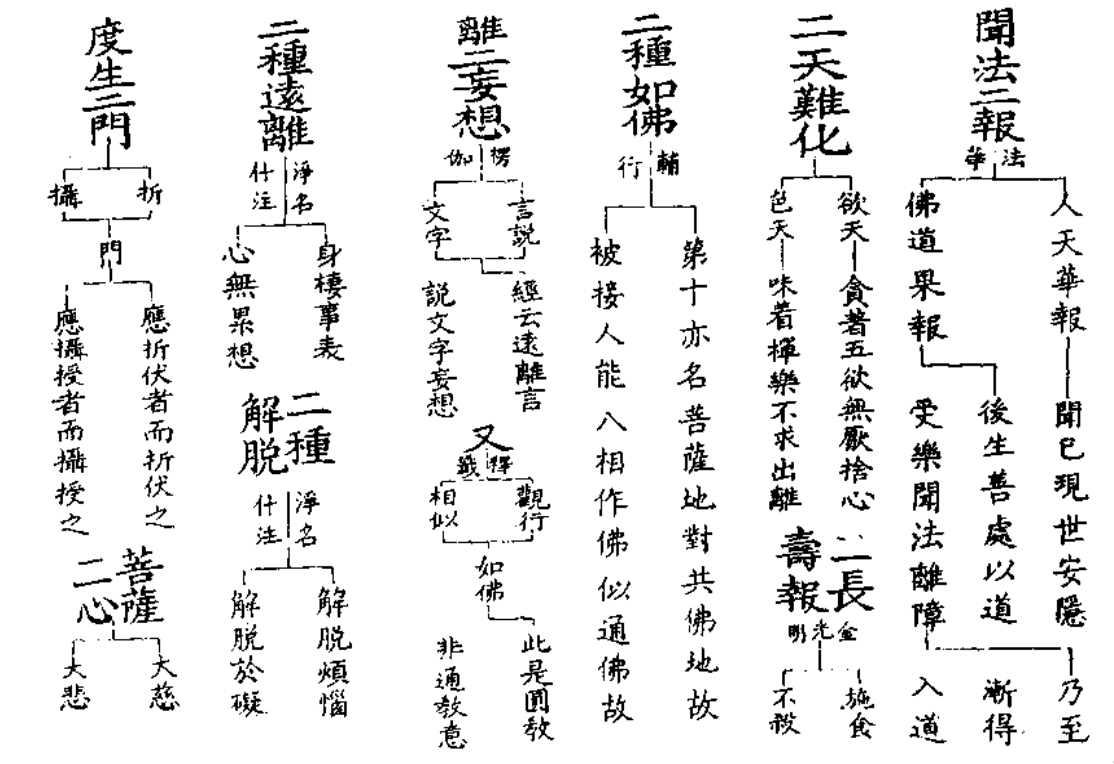 聞法二報
法華
人天華報
聞已現世安隱
佛道果報
後生善處以道
受樂聞法離障
乃至
漸得
入道
二天難化
欲天
貪著五欲無厭捨心
色天
味着禪樂不求出離
二長壽報
金光明
施食
不殺
二種如佛
輔行
第十亦名菩薩地對共佛地故
被接人能八相作佛似通佛故
離二妄想
楞伽
言說
文字
經云遠離言
說文字妄想
又
釋籤
觀行
相似
如佛
此是圓教
非通教意
二種遠離
淨名
什注
身棲事表
心無累想
二種解脫
淨名
什注
解脫煩惱
解脫於礙
度生二門
折
攝
門
應折伏者而折伏之
應攝授者而攝授之
菩薩二心
大慈
大悲